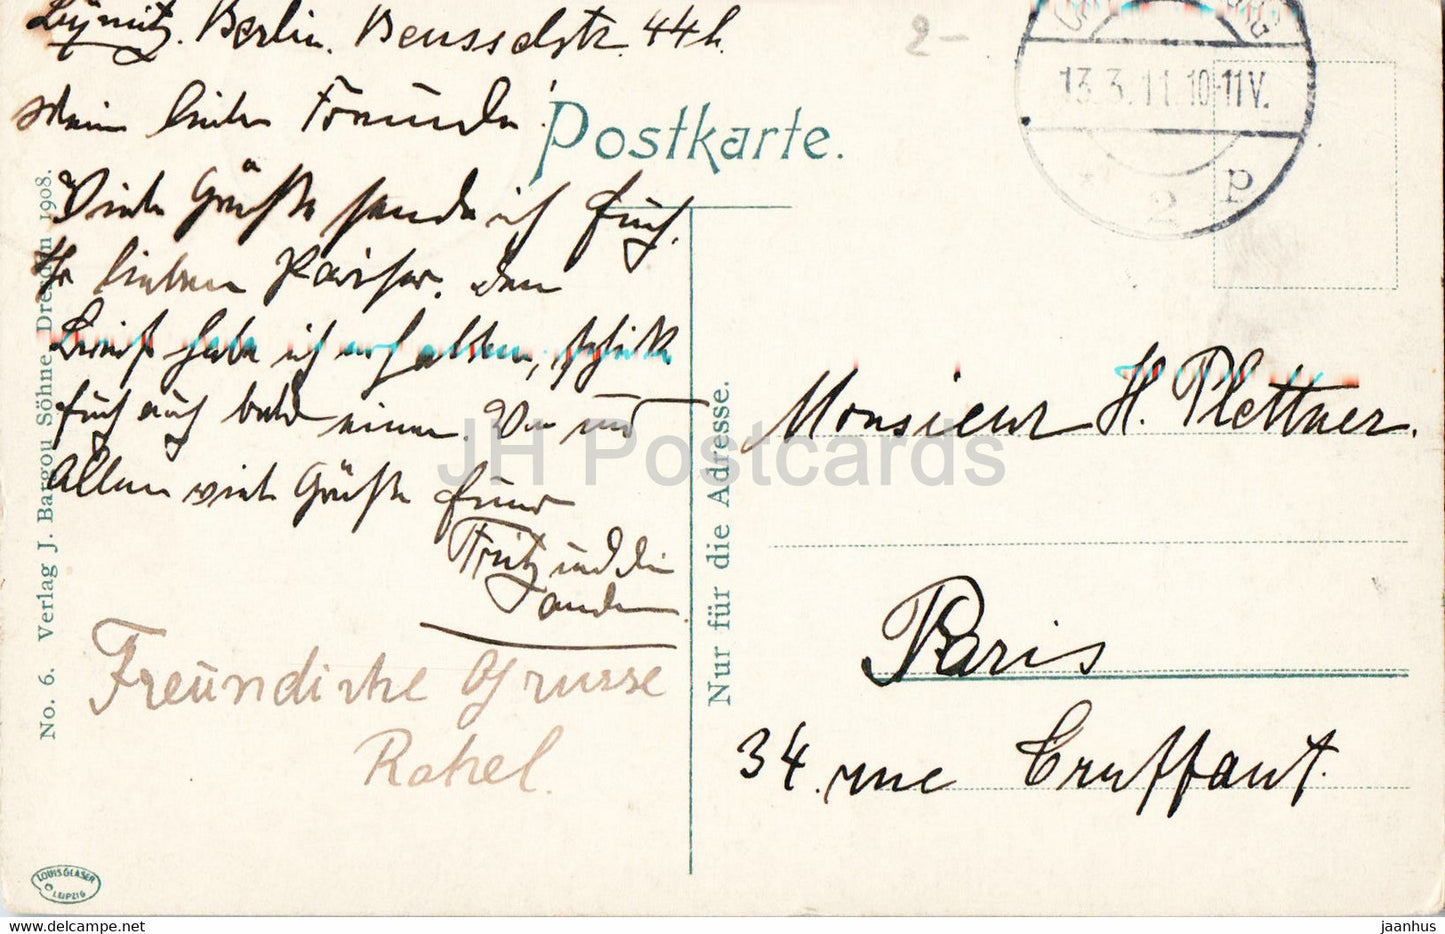 Berlin. Beusselstr. 44h.
Mein lieber Freunde!
Viele Grüße sende ich Euch,
Ihr lieben Pariser. Den
Brief habe ich erhalten, schicke
Euch auch bald einen. Von uns
Allen viele Grüße Euer
Fritz und die
andern
Freundliche Grusse
Rahel.
Postkarte.
13.3.11.10-11V.
* 2 p
2-
Monsieur H. Plettner.
Paris
34. rue Truffaut.
Nur für die Adresse.
No. 6. Verlag J. Bargou Söhne Dresden 1908.
LOUIS GLASER
LEIPZIG
JH Postcards
hippostcard.com/store/jhpostcards/nmtv
jaanhus